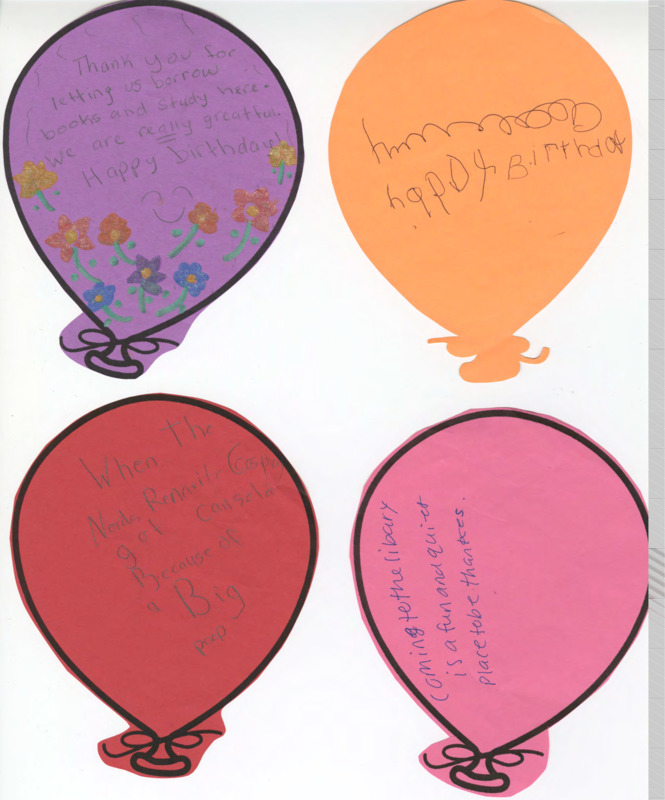 Thank you for
letting us borrow
books and study here.
We are really greatful.
Happy birthday!
happy Birthdat
When the
Got Canseld
Because of
a Big
poop
Coming to the libary
is a fun and quiet
place to be thankes.